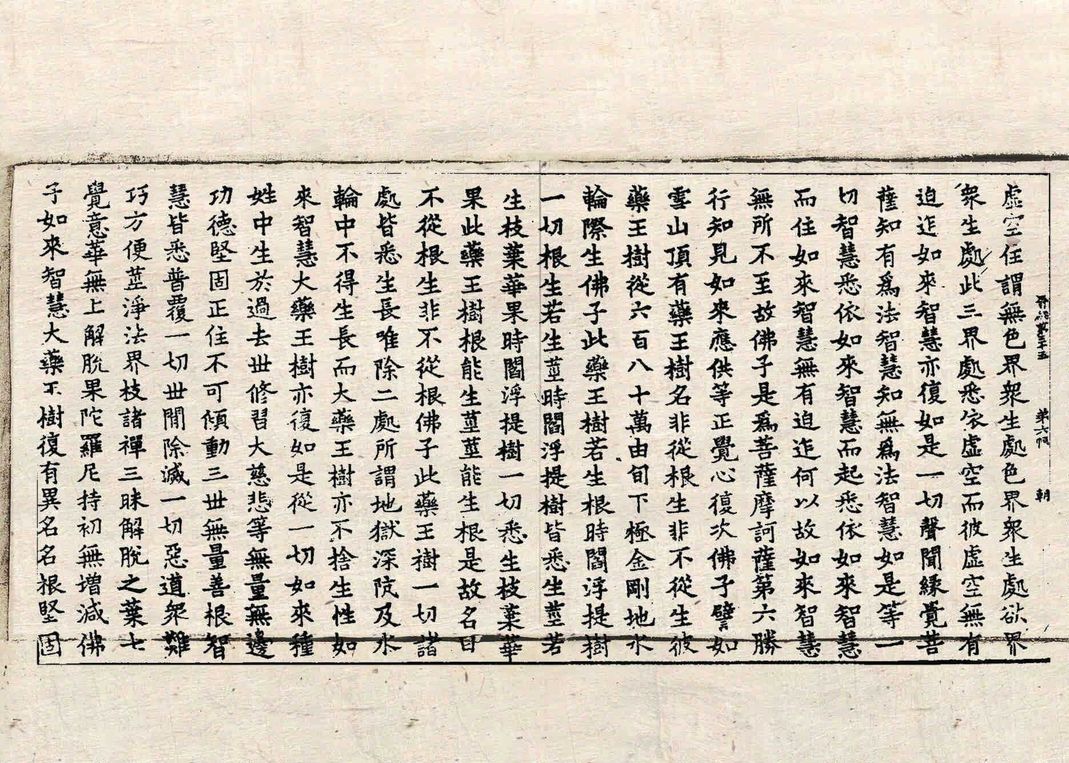 虛空住謂無色界衆生處色界衆生處欲界
衆生處此三界處悉依虛空而彼虛空無有
迫迮如來智慧亦復如是一切聲聞緣覺菩
薩知有爲法智慧知無爲法智慧如是等一
切智慧悉依如來智慧而起悉依如來智慧
而住如來智慧無有迫迮何以故如來智慧
無所不至故佛子是爲菩薩摩訶薩第六勝
行知見如來應供等正覺心復次佛子譬如
雪山頂有藥王樹名非從根生非不從生彼
藥王樹從六百八十萬由旬下極金剛地水
輪際生佛子此藥王樹若生根時閻浮提樹
一切根生若生莖時閻浮提樹皆悉生莖若
生枝葉華果時閻浮提樹一切悉生枝葉華
果此藥王樹根能生莖莖能生根是故名曰
不從根生非不從根佛子此藥王樹一切諸
處皆悉生長唯除二處所謂地獄深阬及水
輪中不得生長而大藥王樹亦不捨生性如
來智慧大藥王樹亦復如是從一切如來種
姓中生於過去世修習大慈悲等無量無邊
功德堅固正住不可傾動三世無量善根智
慧皆悉普覆一切世閒除滅一切惡道衆難
巧方便莖淨法界枝諸禪三昧解脫之葉七
覺意華無上解脫果陀羅尼持初無增減佛
子如來智慧大藥王樹復有異名名根堅固
第六張
朝